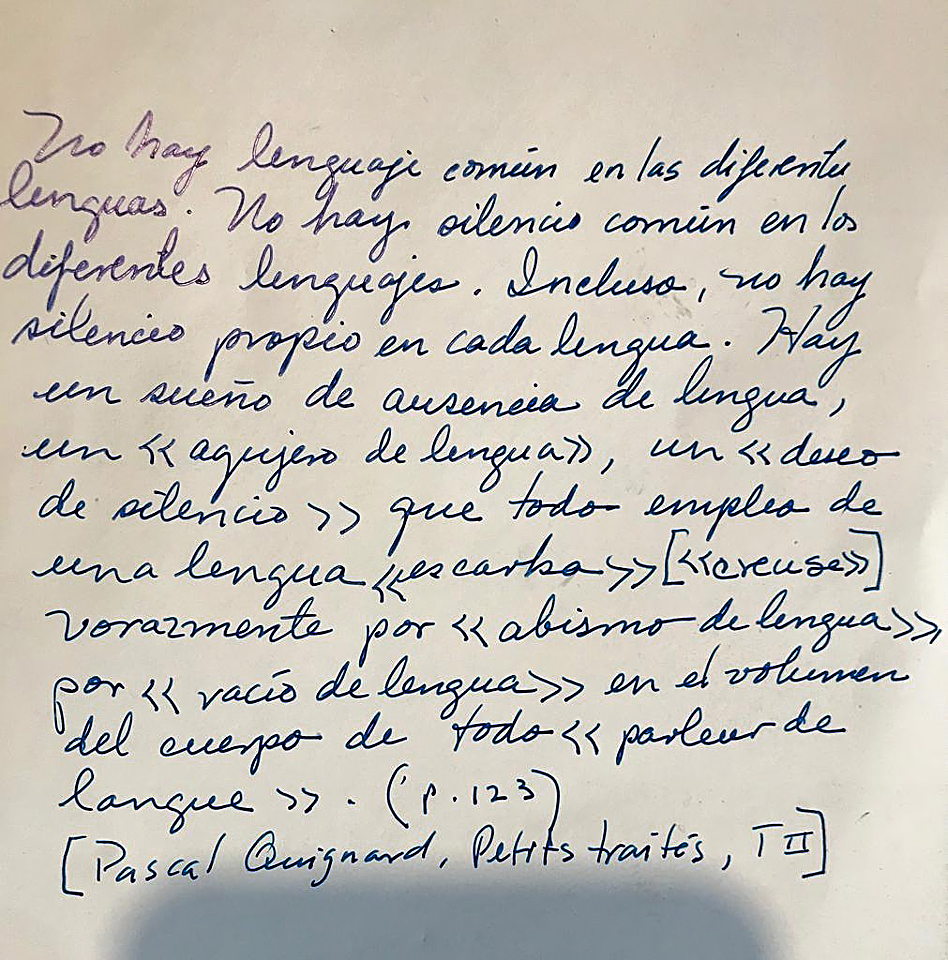 No hay lenguaje común en las diferentes
lenguas. No hay silencio común en los
diferentes lenguajes. Incluso, no hay
silencio propio en cada lengua. Hay
un sueño de ausencia de lengua,
un <<agujero de lengua>>, un <<deseo
de silencio>> que todo empleo de
una lengua <<escarba>> [<<creuse>>]
vorazmente por <<abismo de lengua>>,
por << vacío de lengua>> en el volumen
del cuerpo de todo << parleur de
langue >>. (p.123)
[Pascal Quignard, Petits traités, T II]